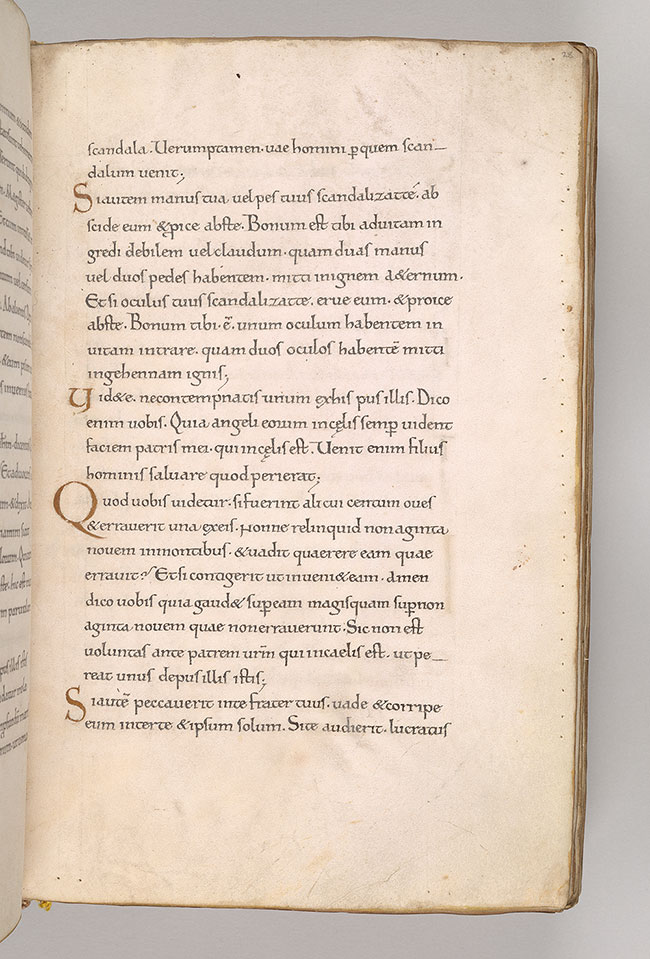 28
scandala. Uerumptamen. uae homini ꝑ quem scan-
dalum uenit;
Si autem manus tua uel pes tuus scandalizat te. ab
scide eum & ꝓice abs te. Bonum est tibi ad uitam in
gredi debilem uel claudum. quam duas manus
uel duos pedes habentem. mitti in ignem aeternum.
Et si oculus tuus scandalizat te. erue eum. & proice
abs te. Bonum tibi. ē. unum oculum habentem in
uitam intrare. quam duos oculos habentē mitti
in gehennam ignis;
Uid&e. ne contempnatis unum ex his pusillis. Dico
enim uobis. Quia angeli eorum in cęlis semꝑ uident
faciem patris mei. qui in cęlis est. Uenit enim filius
hominis saluare quod perierat;
Quod uobis uidetur. si fuerint alicui centum oues
& errauerit una ex eis. Nonne relinquid nonaginta
nouem in montibus. & uadit quaerere eam quae
errauit? Et si contigerit ut inueni& eam. amen
dico uobis quia gaud& suꝑ eam magis quam suꝑ non
aginta nouem quae non errauerunt. Sic non est
voluntas ante patrem ur̄m qui in caelis est. ut pe-
reat unus de pusillis istis;
Si autē peccauerit in te frater tuus. uade & corripe
eum inter te & ipsum solum. Si te audierit. lucratus